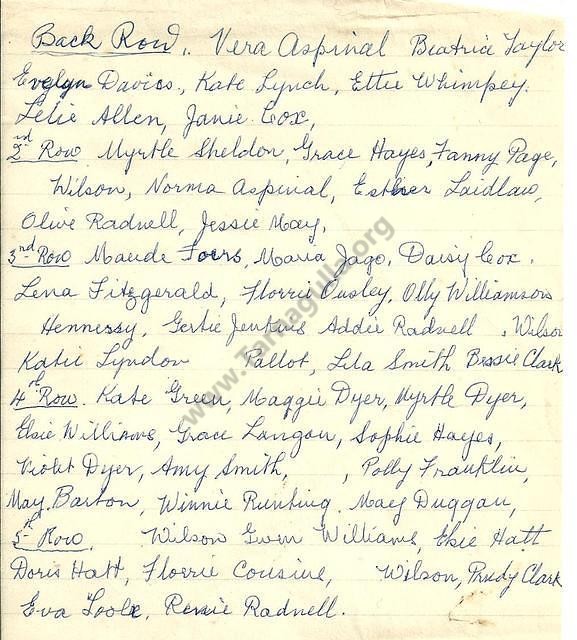 Back Row. Vera Aspinal Beatrice Taylor
Evelyn Davies, Kate Lynch, Ettie Whimpey.
Lelie Allen, Janie Cox,
2nd Row Myrtle Sheldon, Grace Hayes, Fanny Page,
Wilson, Norma Aspinal, Esther Laidlaw,
Olive Radnell, Jessie May,
3rd Row Maude, Maria Jago, Daisy Cox.
Lena Fitzgerald, Florrie Ousley, Olly Williamson
Hennessy, Gertie Jenkins Addie Radnell, Wilson
Katie Lyndon Pallot, Lila Smith Bessie Clark
4th Row. Kate Green, Maggie Dyer, Myrtle Dyer,
Elsie Williams, Grace Langan, Sophie Hayes,
Violet Dyer, Amy Smith, , Polly Franklin,
May Barton, Winnie Runting. May Duggan,
5th Row. Wilson Gwen Williams, Elsie Hatt
Doris Hatt, Florrie Cousins, Wilson, Prudy Clark
Eva Toole, Renie Radnell.
www.Tarnagulla.org